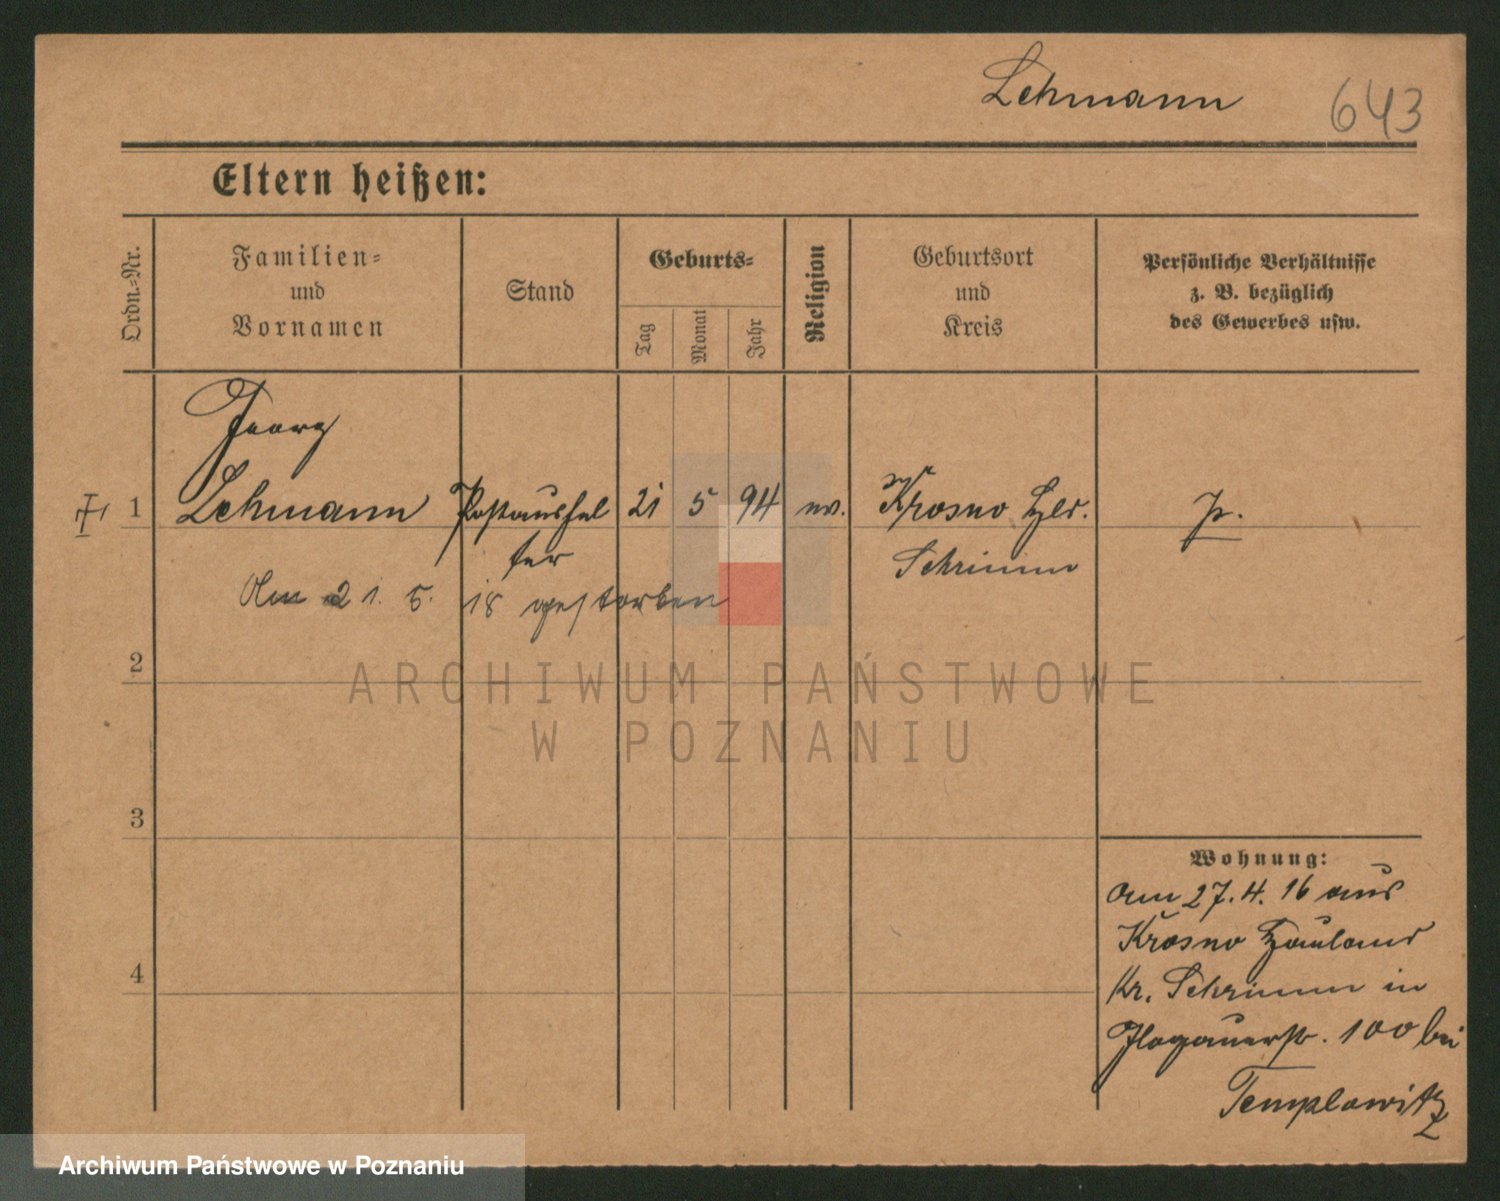 Lehmann 643
Eltern heißen:
Ordn.-Nr.
Familien-
und
Vornamen
Stand
Geburts-
Tag
Monat
Jahr
Religion
Geburtsort
und
Kreis
Persönliche Verhältnisse
z. B. bezüglich
des Gewerbes usw.
Georg
1 Lehmann Postaushel 21 5 94 ev. Krosno Hld.
fer Schrimm
Am 21. 5. 18 gestorben
2
3
4
Wohnung:
am 27. 4. 16 aus
Krosno Hauland
Kr. Schrimm in
Glogauerstr. 100 bei
Templowitz
ARCHIWUM PAŃSTWOWE
W POZNANIU
Archiwum Państwowe w Poznaniu